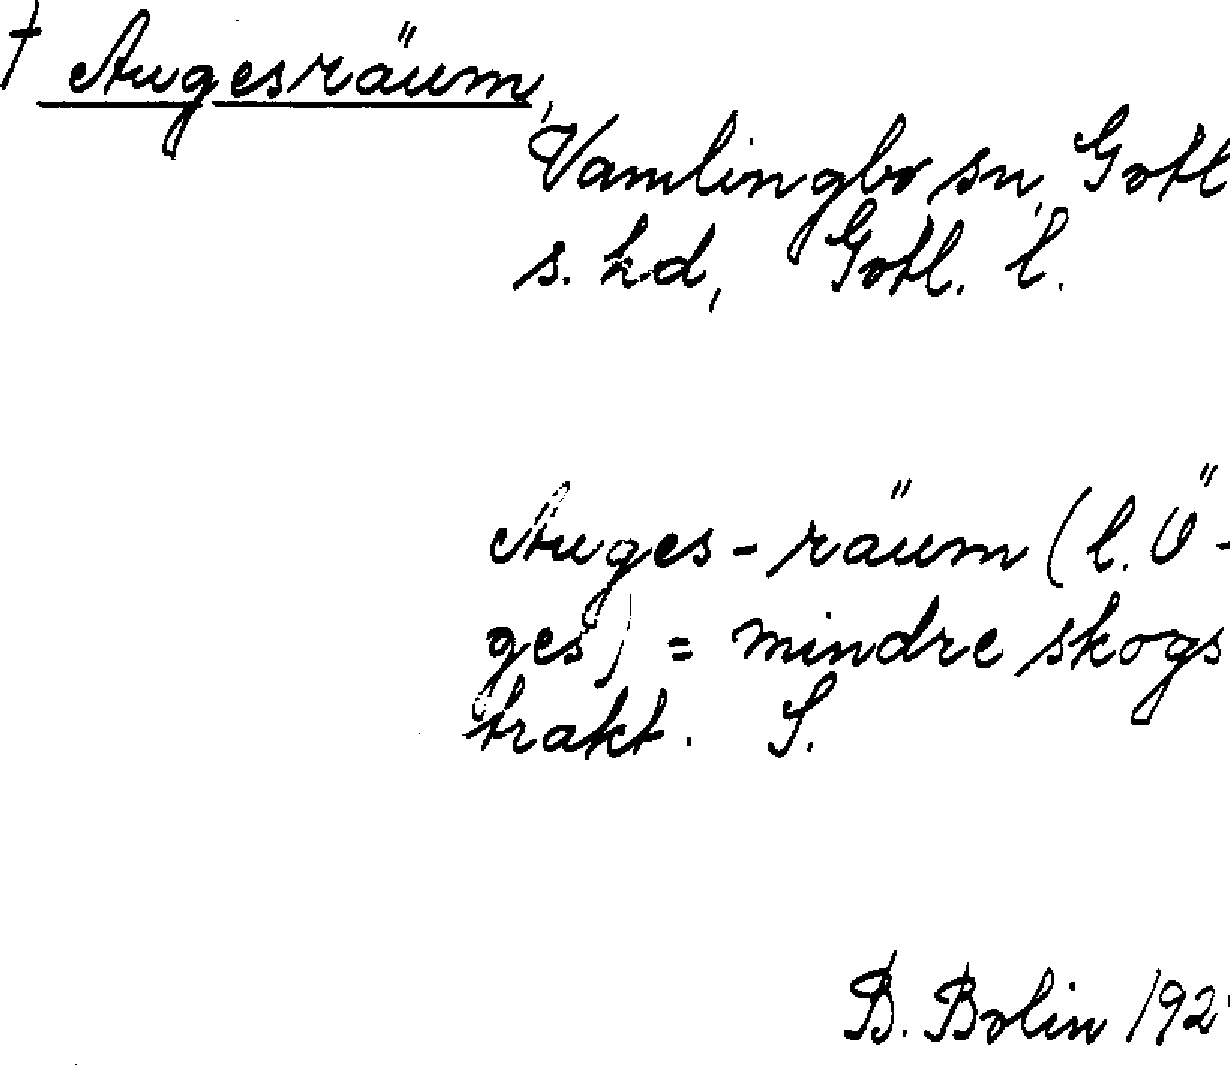 † Augesräum,
Vamlingbo sn, Gotl
s. hd, Gotl. l.
Auges-räum (l. Ö-
ges) = mindre skogs
trakt. S.
B. Bolin 192